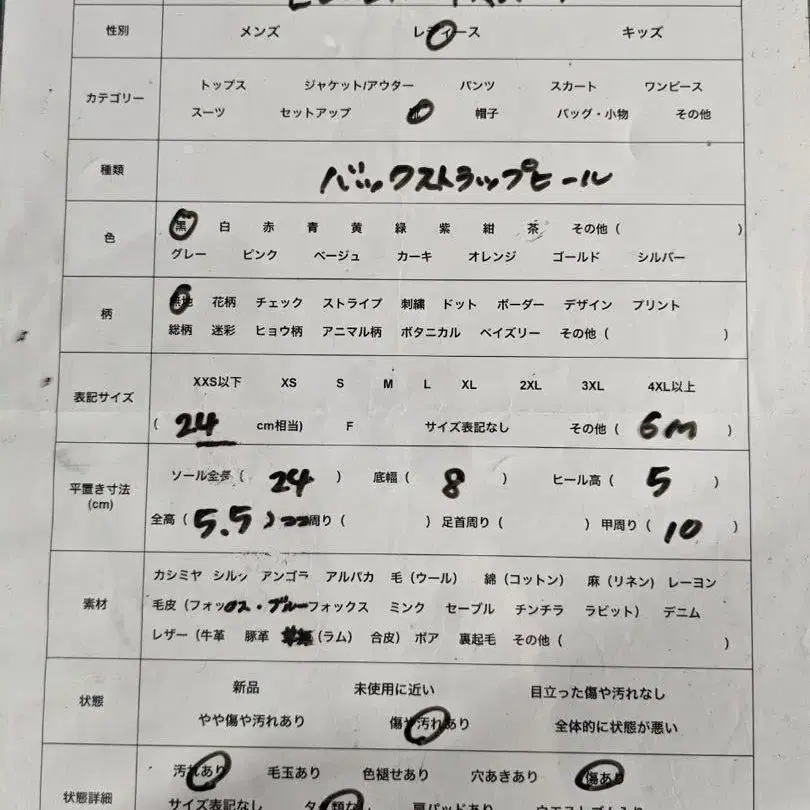 性別 メンズ レディース キッズ
カテゴリー
トップス ジャケット/アウター パンツ スカート ワンピース
スーツ セットアップ 帽子 バッグ・小物 その他
種類 バックストラップヒール
色
黒 白 赤 青 黄 緑 紫 紺 茶 その他 ( )
グレー ピンク ベージュ カーキ オレンジ ゴールド シルバー
柄
無地 花柄 チェック ストライプ 刺繍 ドット ボーダー デザイン プリント
総柄 迷彩 ヒョウ柄 アニマル柄 ボタニカル ペイズリー その他 ( )
表記サイズ
XXS以下 XS S M L XL 2XL 3XL 4XL以上
( 24 cm相当) F サイズ表記なし その他 ( 6M )
平置き寸法
(cm)
ソール全長 ( 24 ) 底幅 ( 8 ) ヒール高 ( 5 )
全高 ( 5.5 ) 周り ( ) 足首周り ( ) 甲周り ( 10 )
素材
カシミヤ シルク アンゴラ アルパカ 毛 (ウール) 綿 (コットン) 麻 (リネン) レーヨン
毛皮 (フォックス・ブルーフォックス ミンク セーブル チンチラ ラビット) デニム
レザー (牛革 豚革 (ラム) 合皮) ボア 裏起毛 その他 ( )
状態
新品 未使用に近い 目立った傷や汚れなし
やや傷や汚れあり 傷や汚れあり 全体的に状態が悪い
状態詳細
汚れあり 毛玉あり 色褪せあり 穴あきあり 傷あり
サイズ表記なし タグ類なし 肩パッドあり ウエストゴムあり